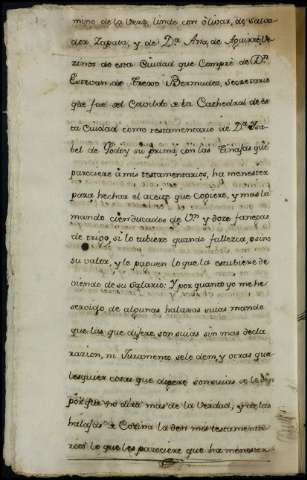 mino de la Vera, linde con olivar, de Salva-
dor Zapata, y de Dª Ana, de Aguirre, Ve-
zinos de esta Ciudad que Compré de Dⁿ
Estevan de Trexo Bermudez, Secretario
que fue del Cavildo de la Cathedral de es-
ta Ciudad como testamentario de Dª Isa-
bel de Godoy su prima, con las Tinajas que
pareciere à mis testamentarios, ha menester
para hechar el aceite que copiere, y mas la
mando cien ducados de Vⁿ y doze fanegas
de trigo, si lo tubiere quando fallezca, o sino
su valor, y le paguen lo que la estubiere de-
viendo de su Salario: Y por quanto yo me he
servido de algunas halajas suias mando
que las que dijere, son suias sin mas decla-
razion, ni Juramento se le den, y otras qua-
lesquier cosas que dijere son suias se le den
por que no dirà mas de la Verdad, y de las
halajas de Cozina la den mis testamenta-
rios lo que les pareciere que ha menester